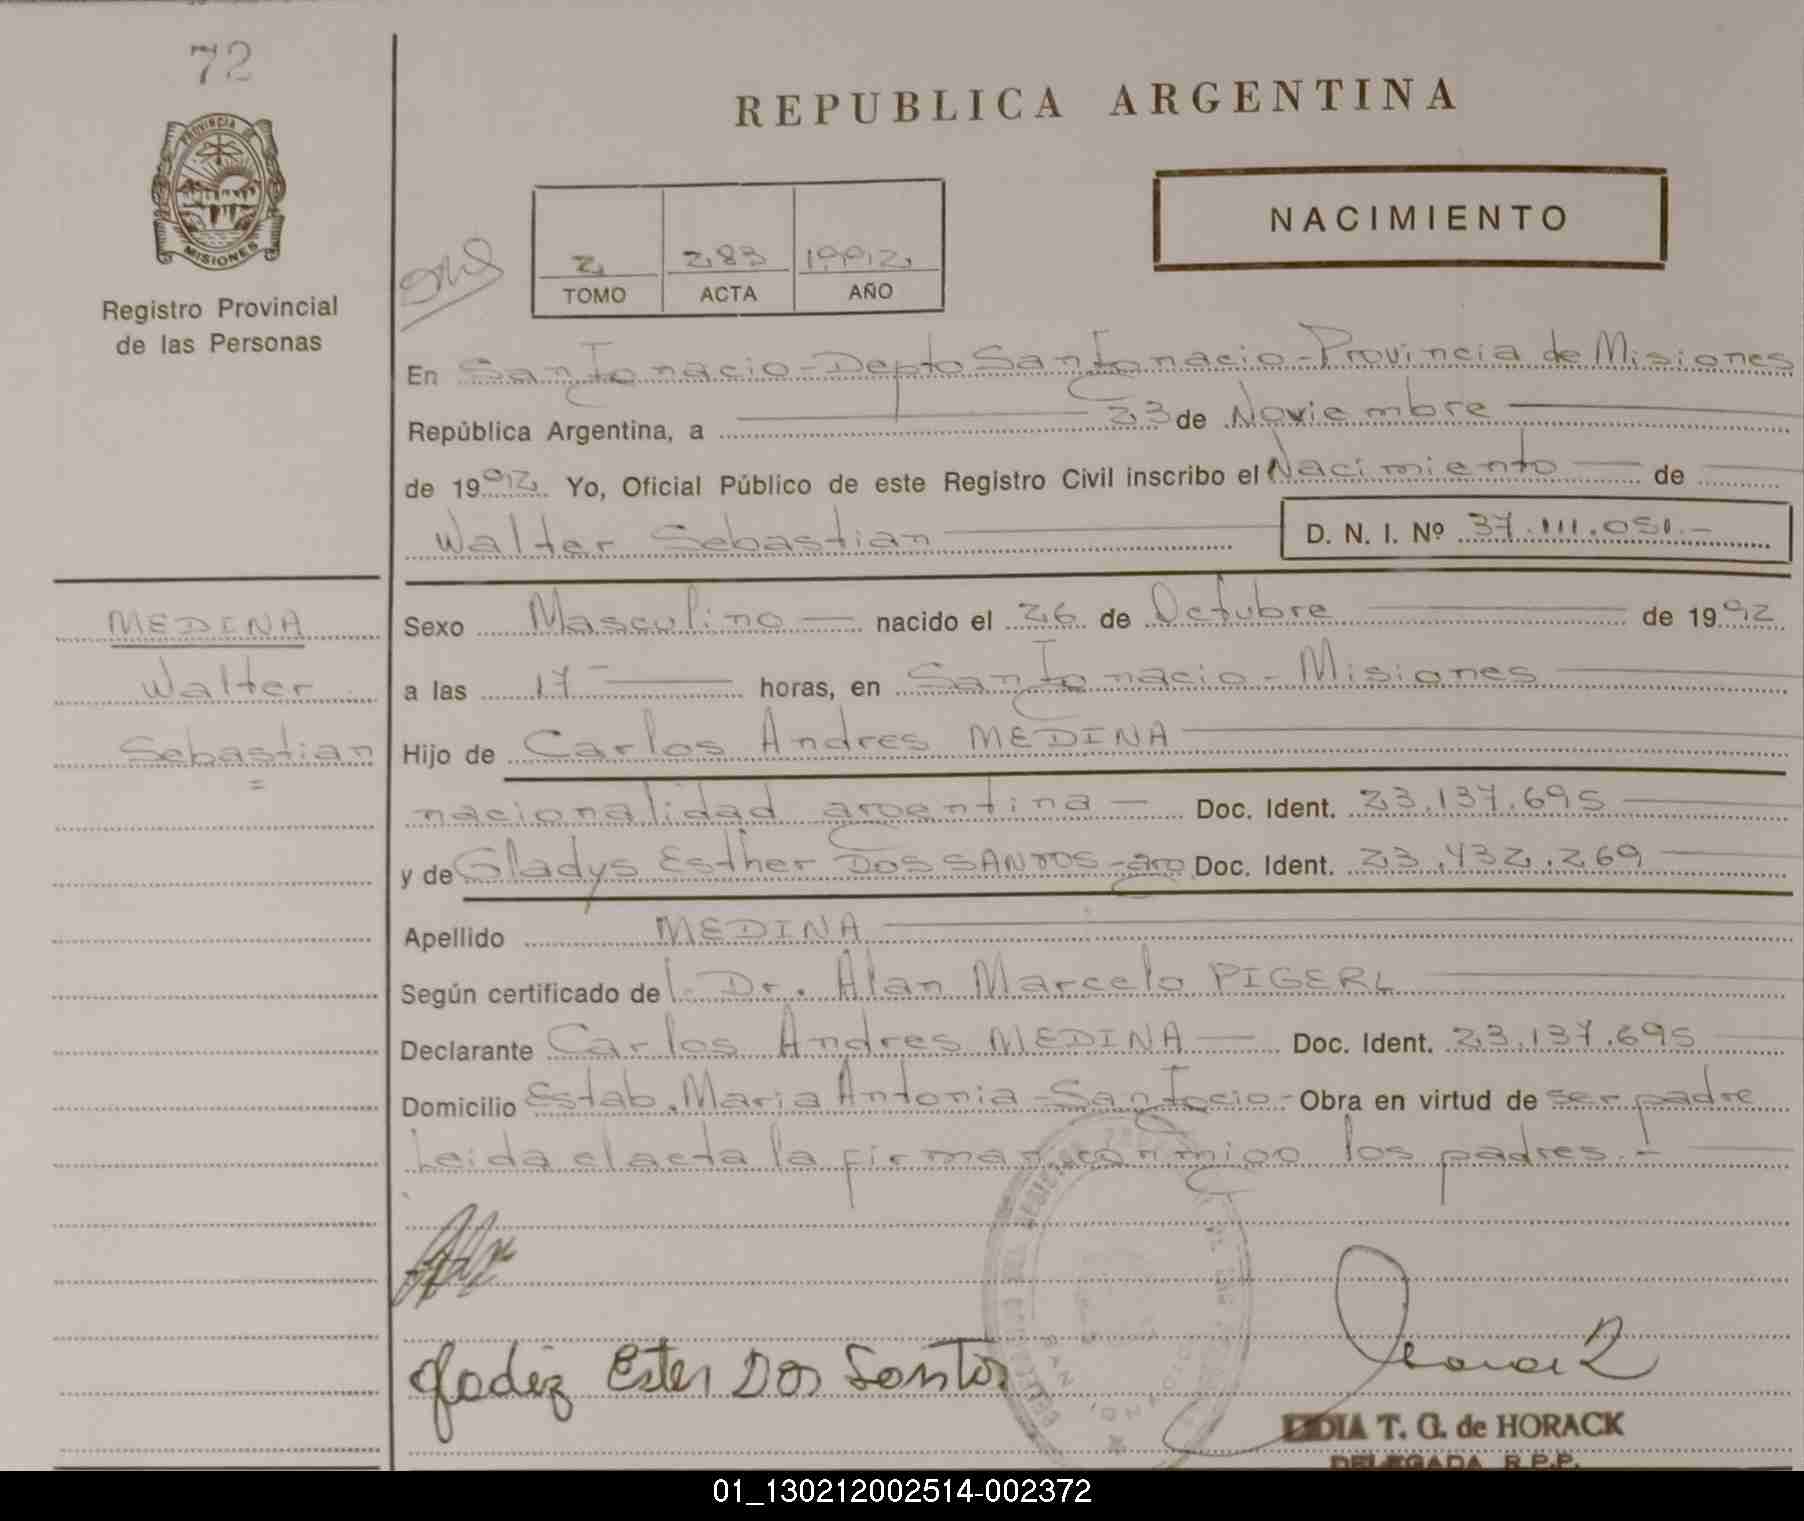 72
REPUBLICA ARGENTINA
PROVINCIA DE
MISIONES
Registro Provincial
de las Personas
NACIMIENTO
2 283 1992
TOMO ACTA AÑO
En San Ignacio - Depto San Ignacio - Provincia de Misiones
República Argentina, a 23 de Noviembre
de 1992 Yo, Oficial Público de este Registro Civil inscribo el Nacimiento de
Walter Sebastian D. N. I. Nº 37.111.051.-
MEDINA
Walter
Sebastian
Sexo Masculino nacido el 26 de Octubre de 1992
a las 17 horas, en San Ignacio - Misiones
Hijo de Carlos Andres MEDINA
nacionalidad argentina Doc. Ident. 23.137.695
y de Gladys Esther DOS SANTOS - arg Doc. Ident. 23.432.269
Apellido MEDINA
Según certificado del Dr. Alan Marcelo PIGERL
Declarante Carlos Andres MEDINA Doc. Ident. 23.137.695
Domicilio Estab. Maria Antonia - San Igcio - Obra en virtud de ser padre
Leida el acta la firman conmigo los padres.-
gladiz Ester Dos Santos
LIDIA T. G. de HORACK
DELEGADA R.P.P.
01_130212002514-002372